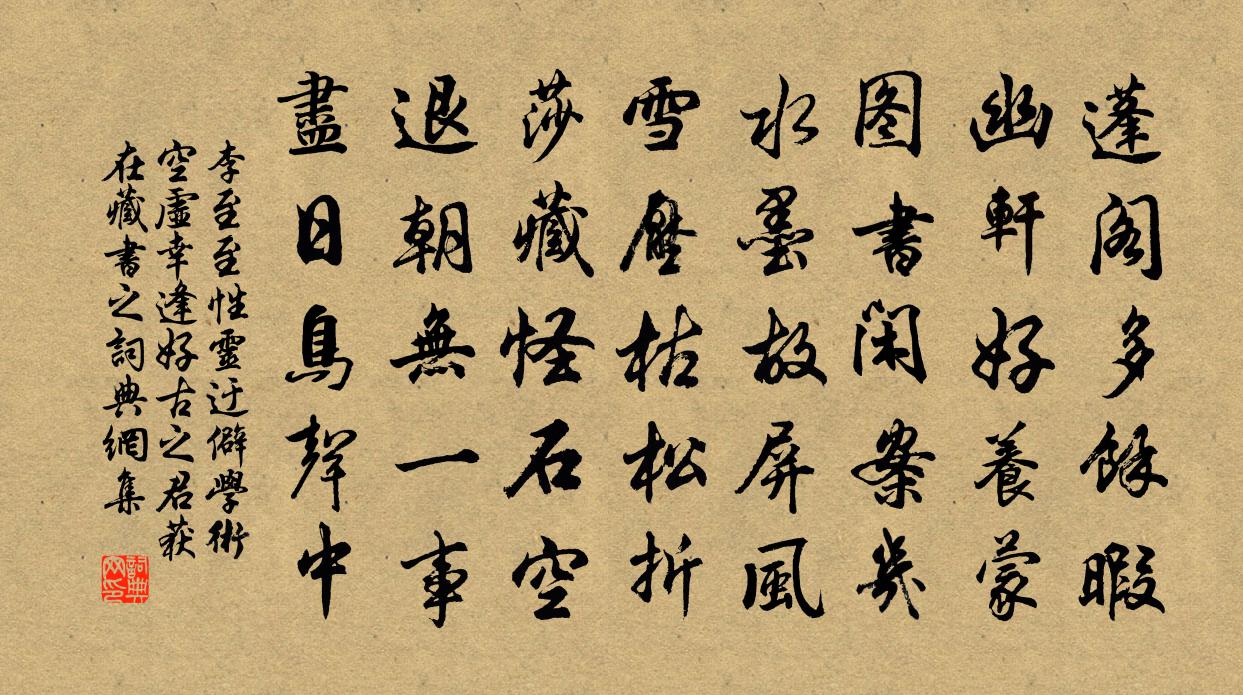 蓬閣多餘暇
幽軒好養蒙
图書閑案幾
水墨故屏風
雪壓枯松折
莎藏怪石空
退朝無一事
盡日鳥聲中
李至至性靈迂僻學術
空虛幸逢好古之君获
在藏書之詞典網集
詞典
网印